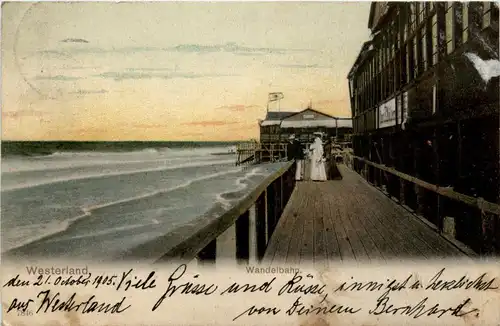 Westerland, Wandelbahn.
den 21. October 1905 Viele Grüsse und Küsse innigen herzlichen
aus Westerland von Deinem Bernhard.